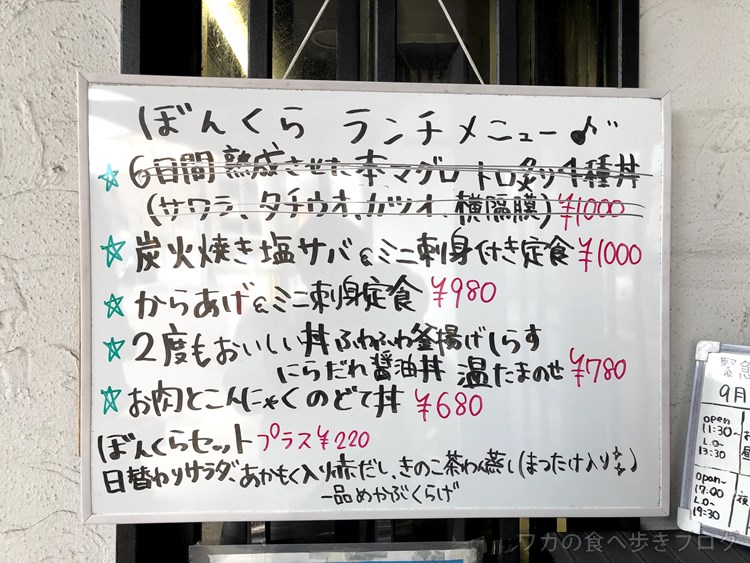 ぼんくら ランチメニュー♪
☆ 6日間熟成させた本マグロ トロ炙り4種丼
(サワラ、タチウオ、カツオ、横隔膜) ¥1000
☆ 炭火焼き塩サバ&ミニ刺身付き定食 ¥1000
☆ からあげ&ミニ刺身定食 ¥980
☆ 2度もおいしい丼 ふわふわ釜揚げしらす
にらだれ醤油丼 温たまのせ ¥780
☆ お肉とこんにゃくのどて丼 ¥680
ぼんくらセット プラス¥220
日替わりサラダ、あかもく入り赤だし、きのこ茶わん蒸し(まつたけ入り☆☆)
一品めかぶくらげ
緊急
9月
open
11:30-
L.O-
13:30
昼
open-
17:00
L.O-
19:30
夜
ワカの食べ歩きブログ